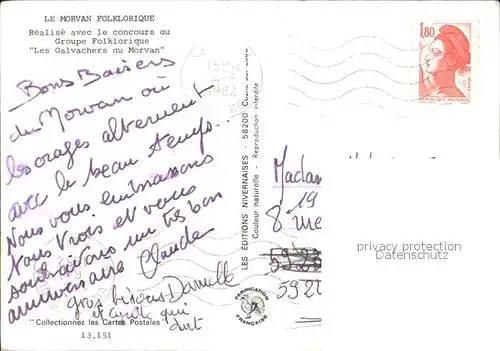 LE MORVAN FOLKLORIQUE
Réalisé avec le concours du
Groupe Folklorique
"Les Galvachers du Morvan"
Bons Baisers
du Morvan où
les orages alternent
avec le beau temps.
Nous vous embrassons
Tous trois et vous
souhaitons un très bon
anniversaire Claude
gros bisous Danielle
et qui
dort
"Collectionnez les Cartes Postales"
13.151
LES EDITIONS NIVERNAISES - 58200
Couleur naturelle - Reproduction interdite
FABRICATION FRANÇAISE
1,80
REPUBLIQUE FRANÇAISE
Madam
19
8 rue
592
privacy protection
Datenschutz